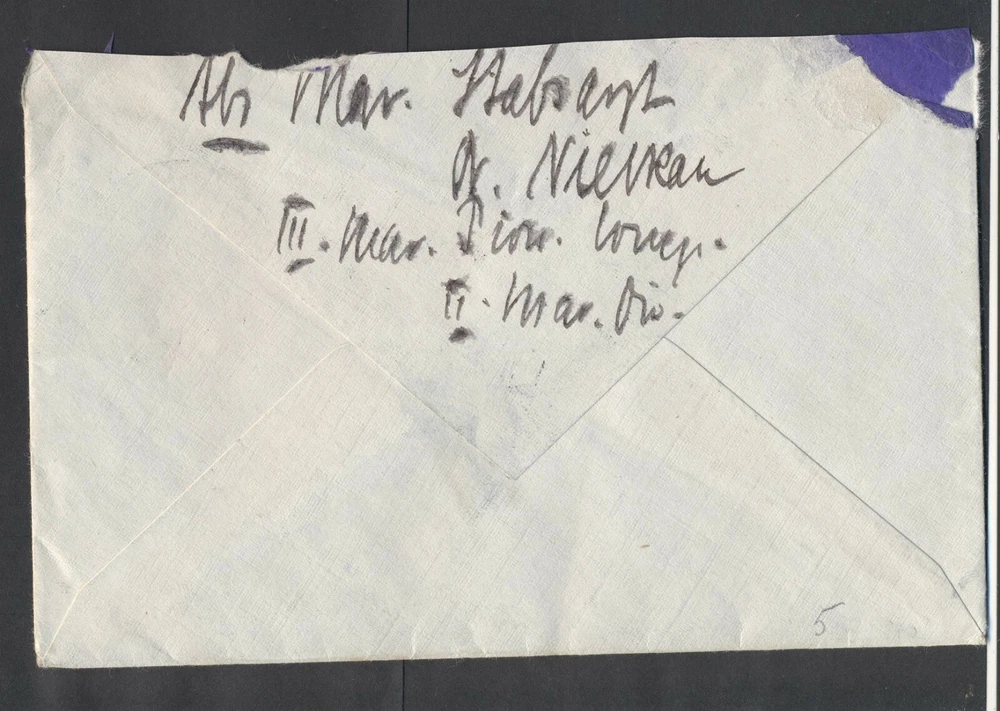 Abs Mar. Stabsarzt
Dr. Nielkau
III. Mar. Pion. Comp.
II. Mar. Div.
5